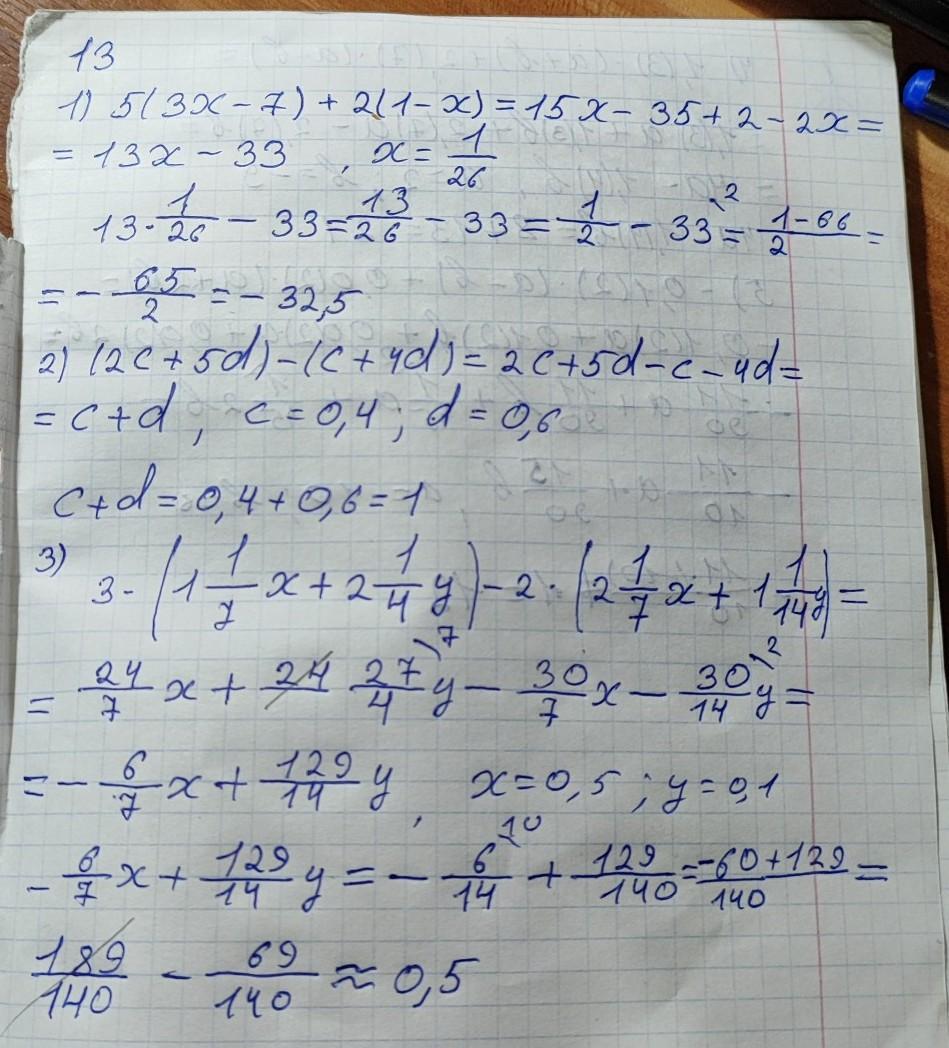 13
1) 5(3x-7)+2(1-x)=15x-35+2-2x=
=13x-33 , x=1/26
13·1/26-33=13/26-33=1/2-33\2=(1-66)/2=
=-65/2=-32,5
2) (2c+5d)-(c+4d)=2c+5d-c-4d=
=c+d, c=0,4; d=0,6
c+d=0,4+0,6=1
3)
3·(1 1/7x+2 1/4y)-2·(2 1/7x+1 1/14y)=
=24/7x+24 27/4\7y-30/7x-30/14\2y=
=-6/7x+129/14y, x=0,5; y=0,1
-6/7x+129/14y=-6/14\10+129/140=(-60+129)/140=
189/140 - 69/140≈0,5